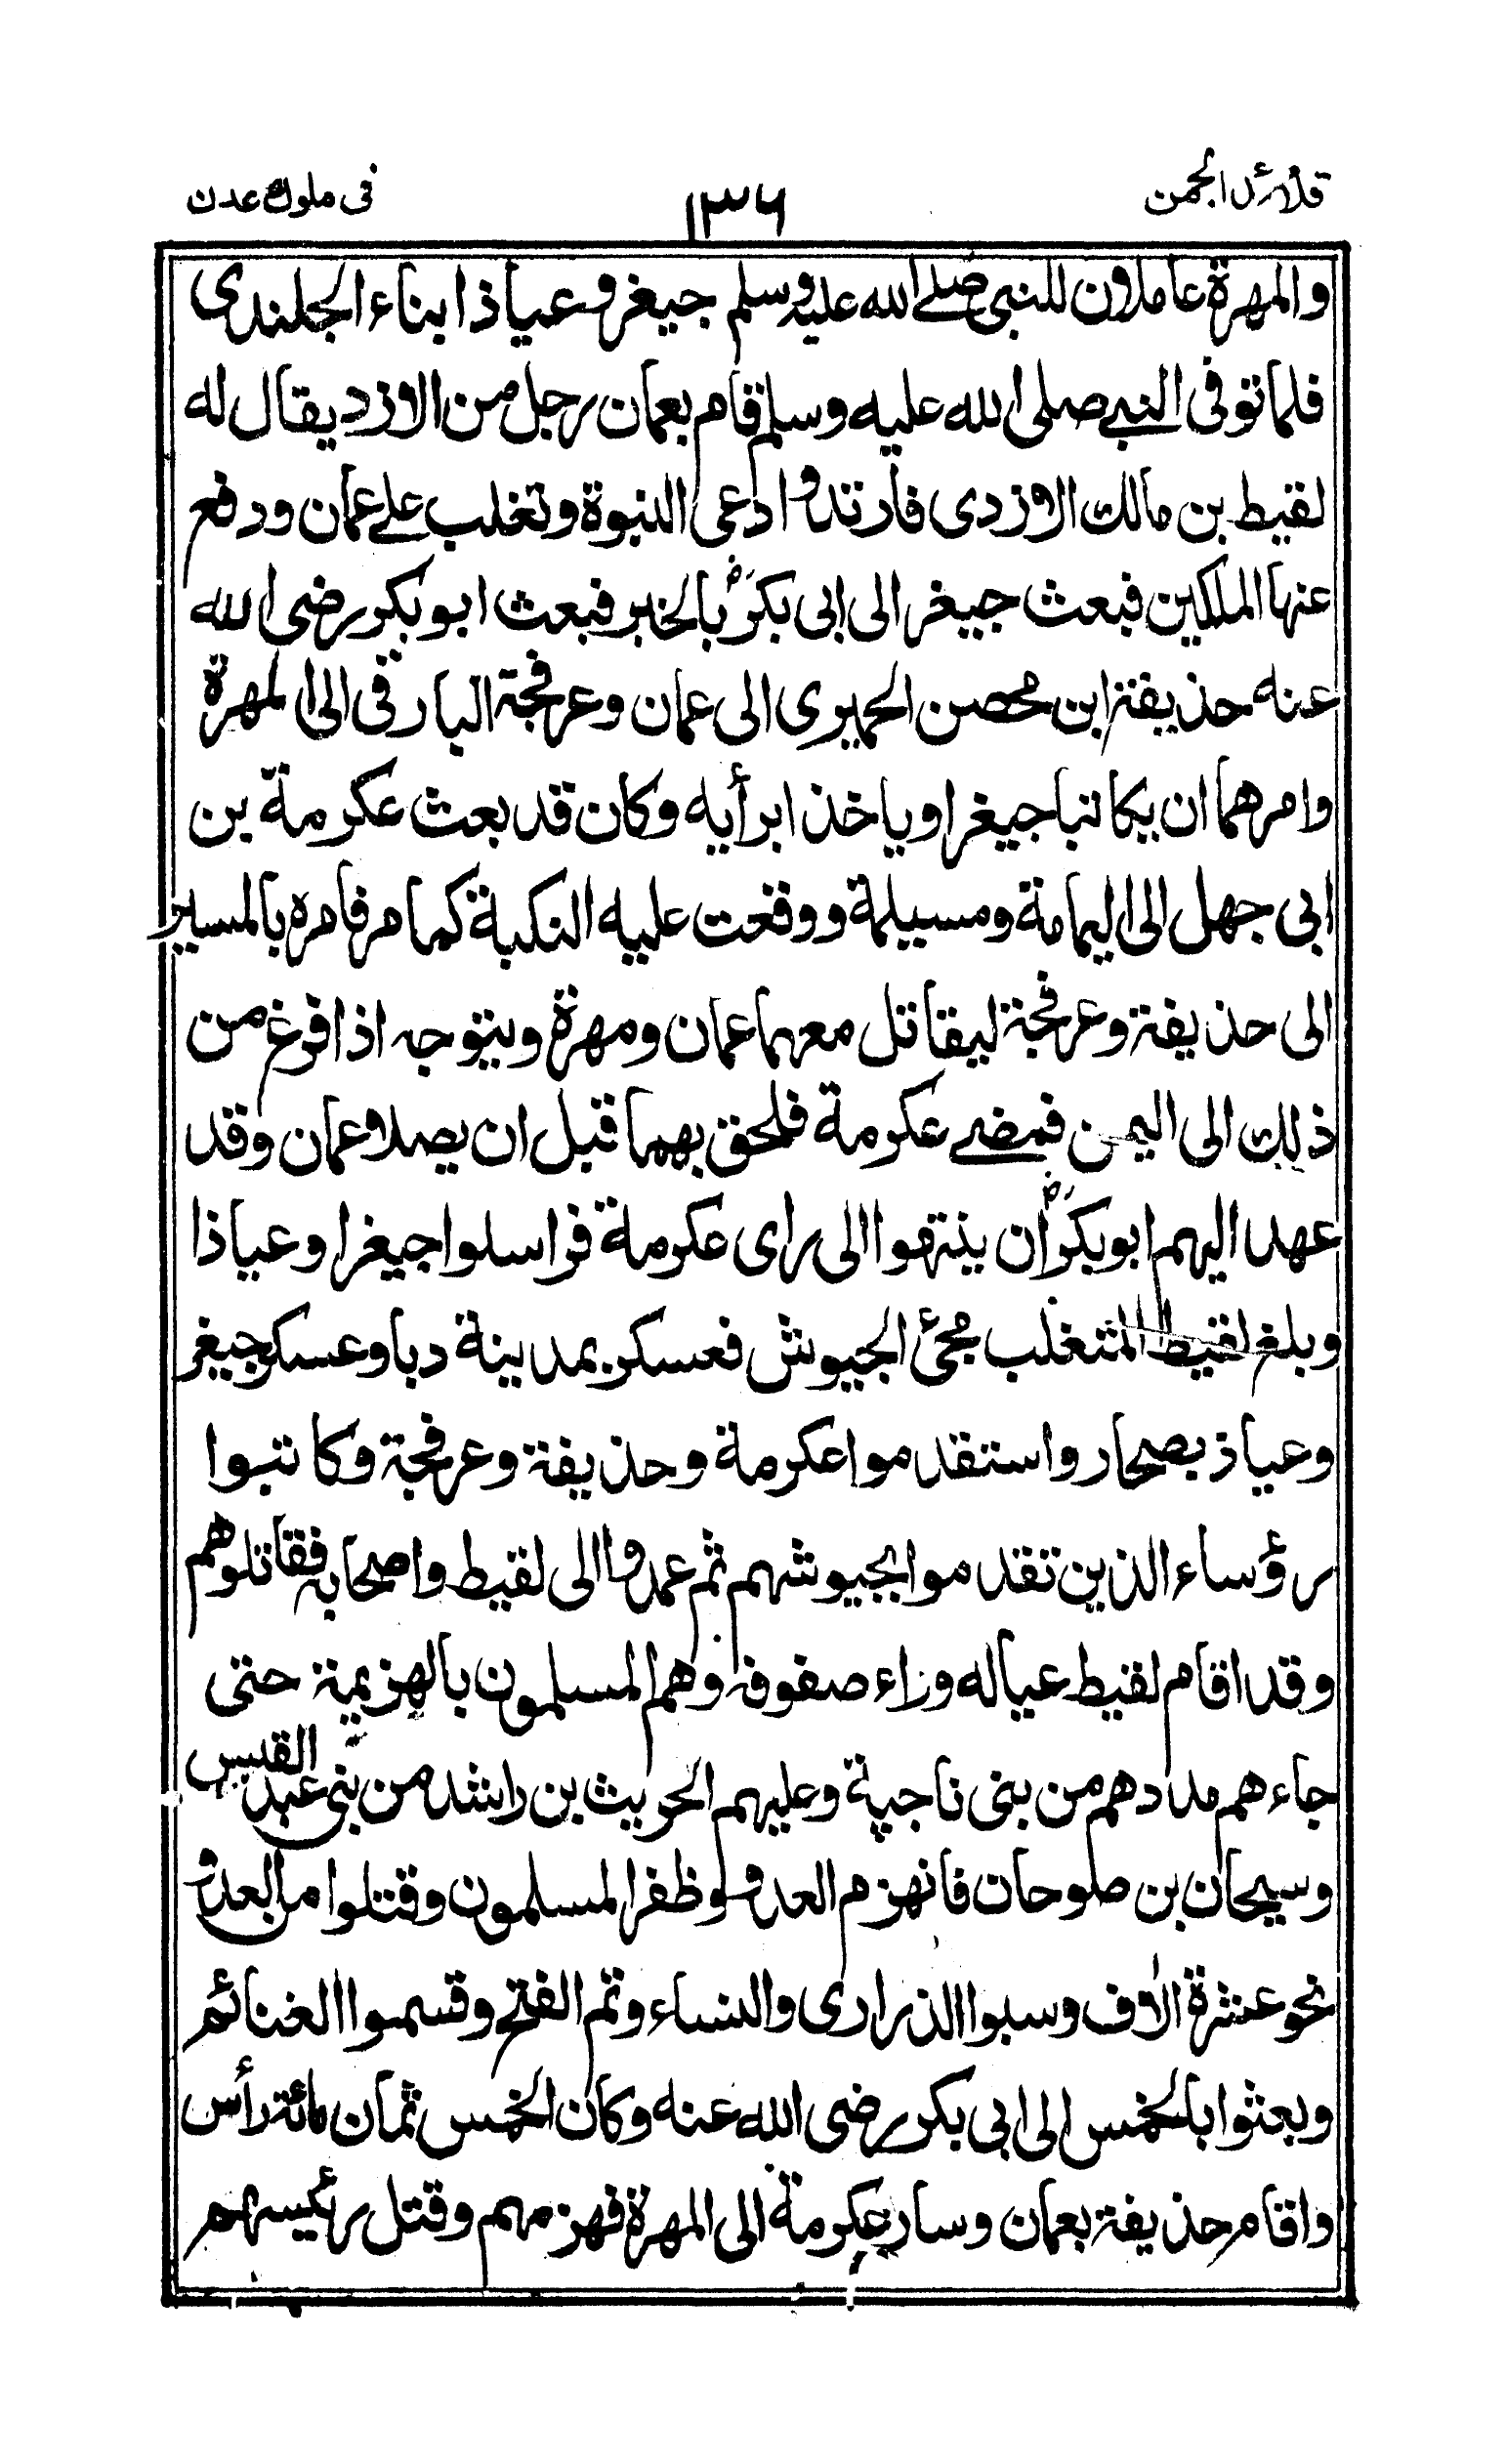 قلائد الجمن ١٣٦ فى ملوك عدن
والمهرة عاملون للنبى صلے الله عليه وسلم جيغر وعياذ ابناء الجلندى
فلما توفى النبے صلى الله عليه وسلم قام بعمان رجل من الازد يقال له
لقيط بن مالك الازدى فارتد وادعى النبوة وتغلب علے عمان ودفع
عنها الملكين فبعث جيغر الى ابى بكرؓ بالخبر فبعث ابو بكر رضى الله
عنه حذيفة ابن محصن الحميرى الى عمان وعرفجة البارقى الى المهرة
وامرهما ان يكاتبا جيغرا وياخذا برأيه وكان قد بعث عكرمة بن
ابى جهل الى اليمامة ومسيلمة ووقعت عليه النكبة كما مر فامره بالمسير
الى حذيفة وعرفجة ليقاتل معهما عمان ومهرة ويتوجه اذا فرغ من
ذلك الى اليمن فمضے عكرمة فلحق بهما قبل ان يصلا وعمان وقد
عهد اليهم ابو بكرؓ ان ينتهوا الى راى عكرمة فراسلوا جيغرا وعياذا
وبلغ لقيط المتغلب مجئ الجيوش فعسكر بمدينة دبا وعسكر جيغر
وعياذ بصحار واستقدموا عكرمة وحذيفة وعرفجة وكاتبوا
رؤساء الذين تقدموا بجيوشهم ثم عمدوا الى لقيط واصحابه فقاتلوهم
وقد اقام لقيط عياله وراء صفوفه وهم المسلمون بالهزيمة حتى
جاءهم مددهم من بنى ناجية وعليهم الحريث بن راشد من بنى عبد القيس
وسيحان بن صلوحان فانهزم العدو وظفر المسلمون وقتلوا من العدو
نحو عشرة الاف وسبوا الذرارى والنساء وتم الفتح وقسموا الغنائم
وبعثوا بالخمس الى ابى بكر رضى الله عنه وكان الخمس ثمان مائة رأس
واقام حذيفة بعمان وسار عكرمة الى المهرة فهزمهم وقتل رئيسهم